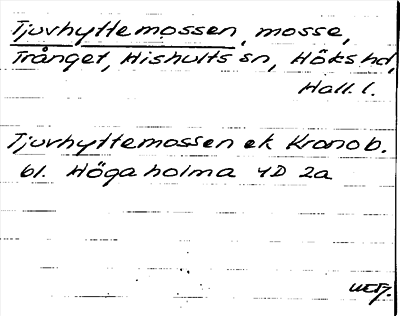 Tjuvhyttemossen, mosse,
Trånget, Hishults sn, Höks hd,
Hall. l.
Tjuvhyttemossen ek Kronob.
61. Höga holma 4D 2a